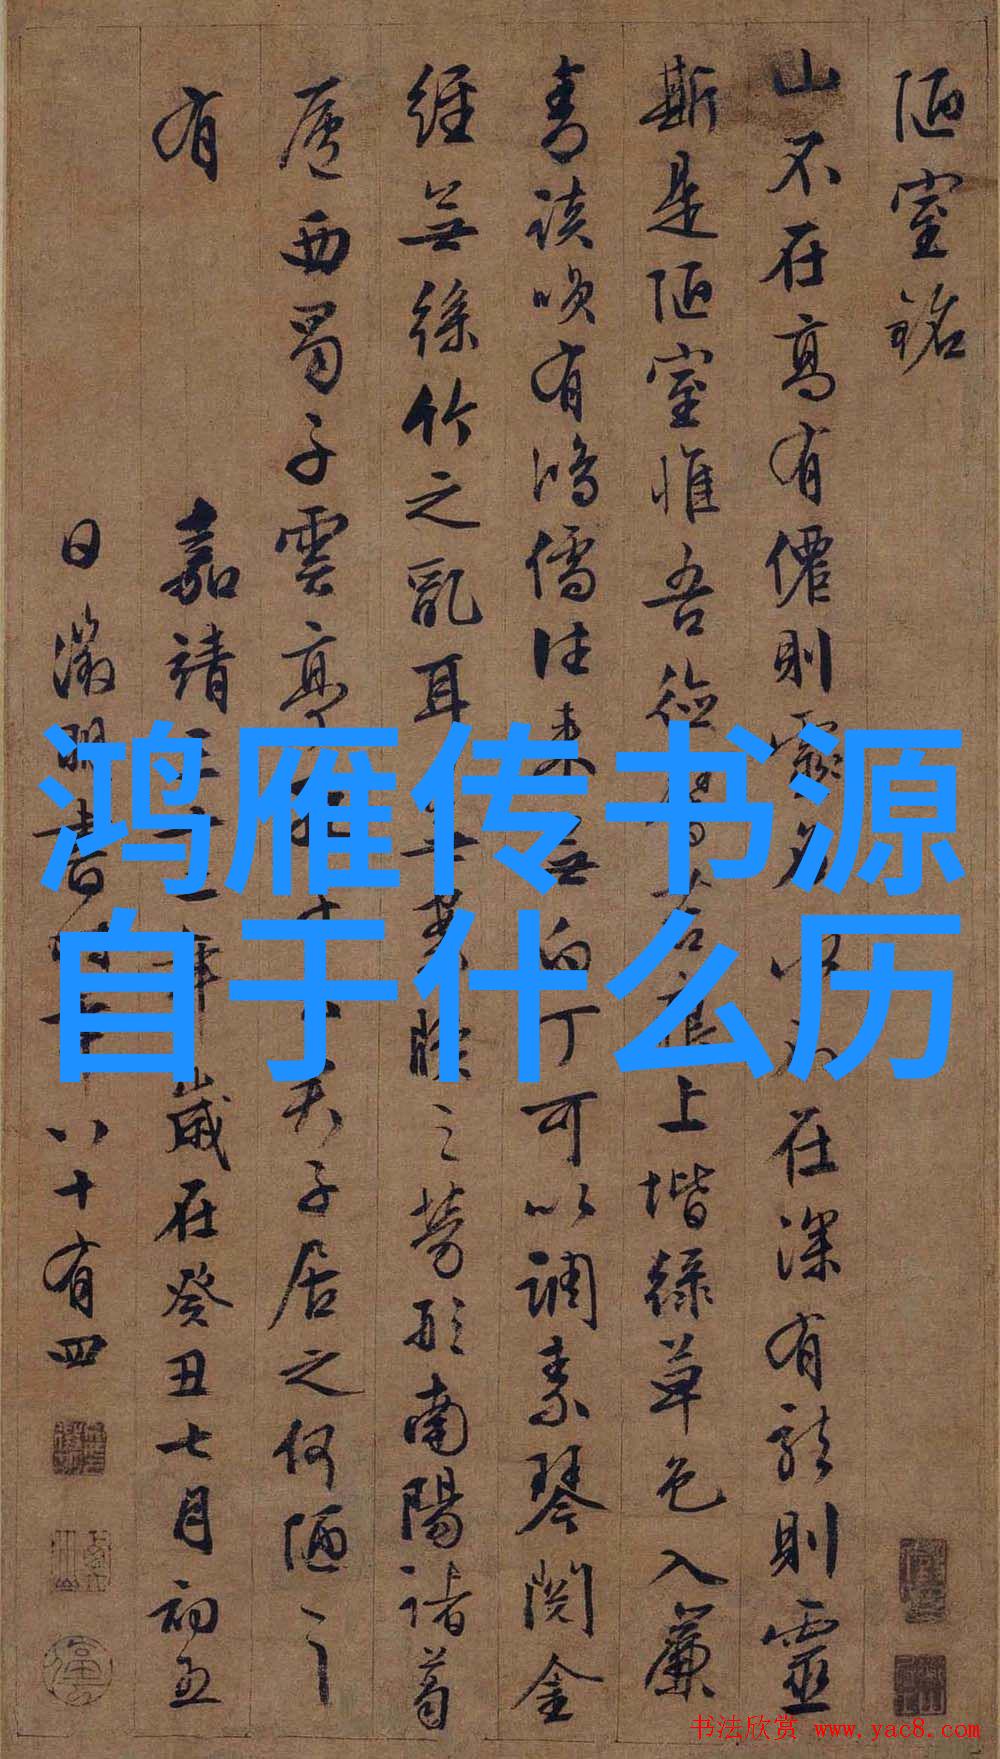 陋室銘
山不在高有僊則名水不在深有龍則靈
斯是陋室惟吾德馨苔痕上堦綠草色入簾
青談咲有鴻儒往來無白丁可以調素琴閱金
經無絲竹之亂耳無案牘之勞形南陽諸葛
廬西蜀子雲亭
子居之何陋之
有
嘉靖三十二年歲在癸丑七月初五
日徵明書時年八十有四
鸿雁传书源
自于什么历
书法欣赏 www.yac8.com